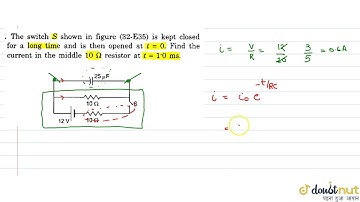 . The switch S shown in figure (32-E35) is kept closed
for a long time and is then opened at t = 0. Find the
current in the middle 10 Ω resistor at t = 1·0 ms.
25 μF
10 Ω
S
12 V
10 Ω
i = V/R = 12/20 = 3/5 = 0.6A
i = i₀ e^(-t/RC)
=
doubtnut